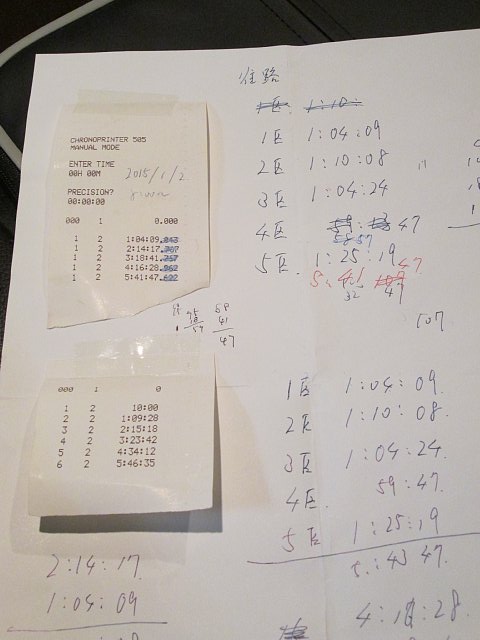 往路
1区. 1:10:
1区 1:04:09
2区 1:10:08
3区 1:04:24
4区 47
58 57
5区. 1:25:19
5:41 47
32 47
107
CHRONOPRINTER 505
MANUAL MODE
ENTER TIME
00H 00M 2015/1/2
PRECISION?
00:00:00
000 1 0.000
1 2 1:04:09.043
1 2 2:14:17.307
1 2 3:18:41.357
1 2 4:16:28.962
1 2 5:41:47.622
59
41
47
000 1 0
1 2 10:00
2 2 1:09:28
3 2 2:15:18
4 2 3:23:42
5 2 4:34:12
6 2 5:46:35
1区 1:04:09.
2区 1:10:08.
3区 1:04:24.
4区. 59:47.
5区 1:25:19
5:43 47.
2:14:17.
1:04:09